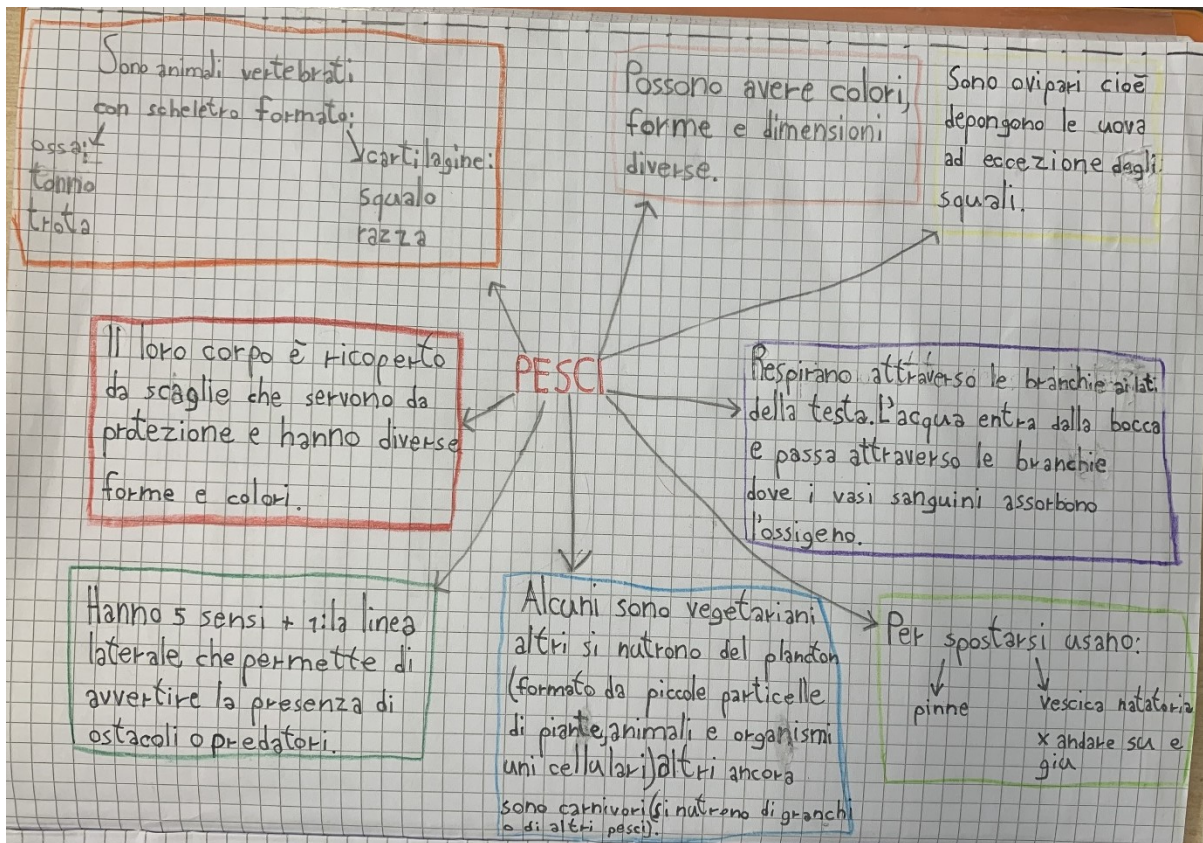 Sono animali vertebrati
con scheletro formato:
ossa:
tonno
trota
cartilagine:
squalo
razza
Possono avere colori,
forme e dimensioni
diverse.
Sono ovipari cioè
depongono le uova
ad eccezione degli
squali.
PESCI
Il loro corpo è ricoperto
da scaglie che servono da
protezione e hanno diverse
forme e colori.
Respirano attraverso le branchie ai lati
della testa. L'acqua entra dalla bocca
e passa attraverso le branchie
dove i vasi sanguini assorbono
l'ossigeno.
Hanno 5 sensi + 1: la linea
laterale, che permette di
avvertire la presenza di
ostacoli o predatori.
Alcuni sono vegetariani
altri si nutrono del plancton
(formato da piccole particelle
di piante, animali e organismi
uni cellulari) altri ancora
sono carnivori (si nutrono di granchi
o di altri pesci).
Per spostarsi usano:
pinne
vescica natatoria
x andare su e
giu